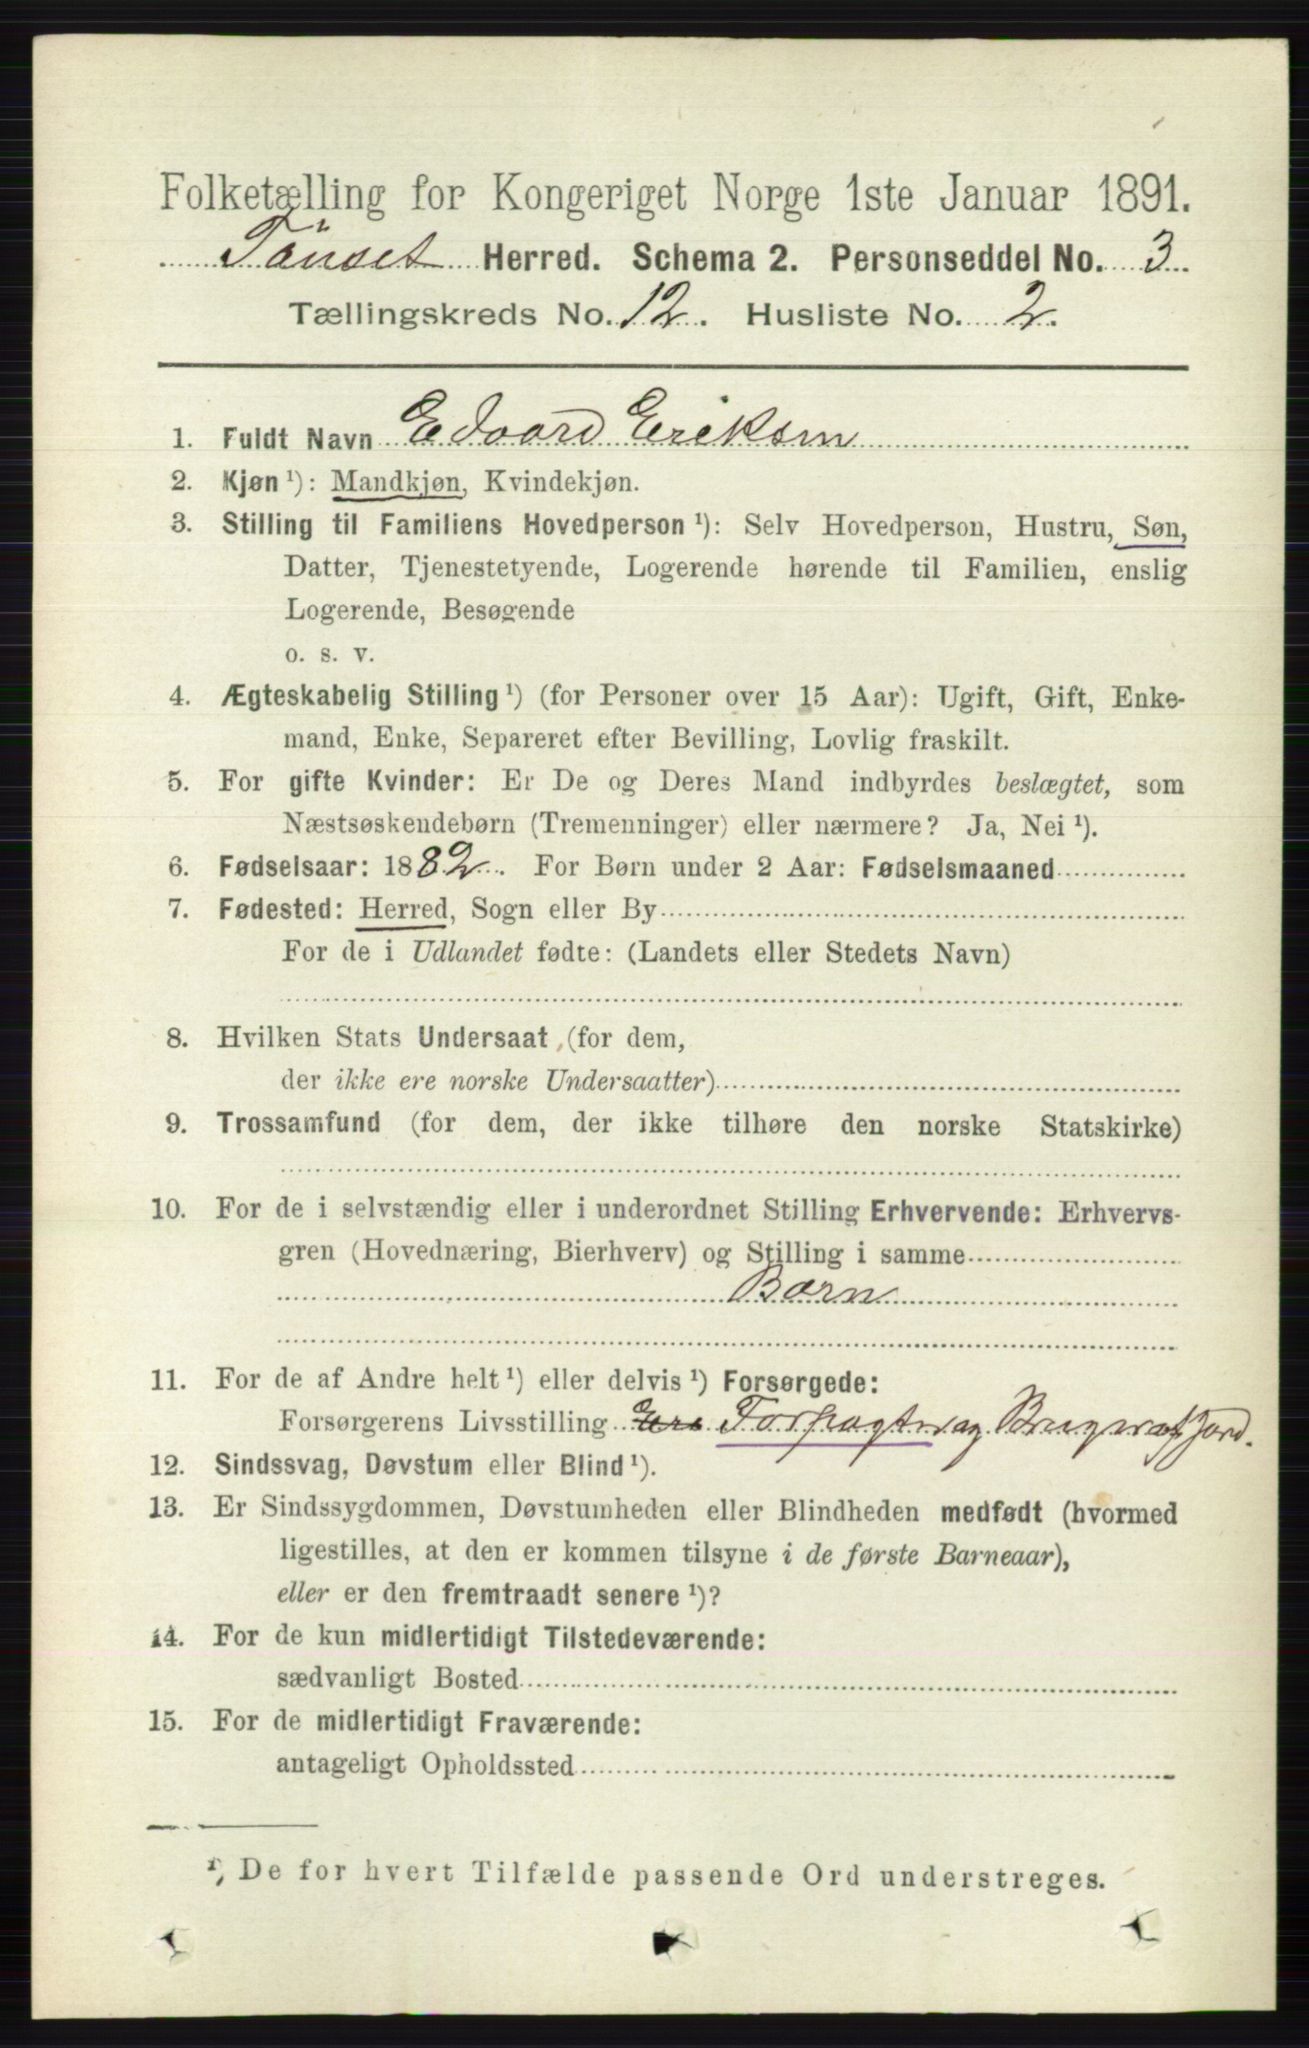 Folketælling for Kongeriget Norge 1ste Januar 1891.
Tönset Herred. Schema 2. Personseddel No. 3
Tællingskreds No. 12. Husliste No. 2.
1. Fuldt Navn Edvard Eriksen
2. Kjøn ¹): Mandkjøn, Kvindekjøn.
3. Stilling til Familiens Hovedperson ¹): Selv Hovedperson, Hustru, Søn,
Datter, Tjenestetyende, Logerende hørende til Familien, enslig
Logerende, Besøgende
o. s. v.
4. Ægteskabelig Stilling ¹) (for Personer over 15 Aar): Ugift, Gift, Enke-
mand, Enke, Separeret efter Bevilling, Lovlig fraskilt.
5. For gifte Kvinder: Er De og Deres Mand indbyrdes beslægtet, som
Næstsøskendebørn (Tremenninger) eller nærmere? Ja, Nei ¹).
6. Fødselsaar: 1882. For Børn under 2 Aar: Fødselsmaaned
7. Fødested: Herred, Sogn eller By
For de i Udlandet fødte: (Landets eller Stedets Navn)
8. Hvilken Stats Undersaat (for dem,
der ikke ere norske Undersaatter)
9. Trossamfund (for dem, der ikke tilhøre den norske Statskirke)
10. For de i selvstændig eller i underordnet Stilling Erhvervende: Erhvervs-
gren (Hovednæring, Bierhverv) og Stilling i samme
Barn
11. For de af Andre helt ¹) eller delvis ¹) Forsørgede:
Forsørgerens Livsstilling Forpagter og Bruger af Jord.
12. Sindssvag, Døvstum eller Blind ¹).
13. Er Sindssygdommen, Døvstumheden eller Blindheden medfødt (hvormed
ligestilles, at den er kommen tilsyne i de første Barneaar),
eller er den fremtraadt senere ¹)?
14. For de kun midlertidigt Tilstedeværende:
sædvanligt Bosted
15. For de midlertidigt Fraværende:
antageligt Opholdssted
¹) De for hvert Tilfælde passende Ord understreges.